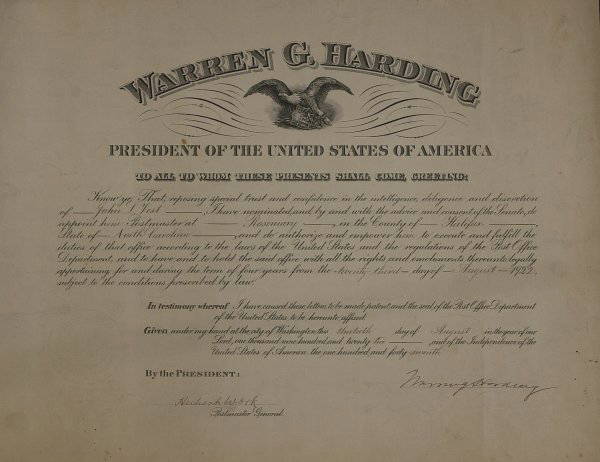 WARREN G. HARDING
PRESIDENT OF THE UNITED STATES OF AMERICA
TO ALL TO WHOM THESE PRESENTS SHALL COME, GREETING:
Know ye, That, reposing special trust and confidence in the intelligence, diligence and discretion
of — John L. — , I have nominated, and, by and with the advice and consent of the Senate, do
appoint him Postmaster at — Rosemary — , in the County of — Halifax — ,
State of — North Carolina — , and do authorize and empower him to execute and fulfill the
duties of that office according to the laws of the United States and the regulations of the Post Office
Department, and to have and to hold the said office with all the rights and emoluments thereunto legally
appertaining for and during the term of four years from the twenty third day of — August — 1922,
subject to the conditions prescribed by law.
In testimony whereof I have caused these letters to be made patent and the seal of the Post Office Department
of the United States to be hereunto affixed.
Given under my hand at the city of Washington this thirtieth day of August in the year of our
Lord, one thousand nine hundred and twenty two — , and of the Independence of the
United States of America the one hundred and forty seventh.
By the PRESIDENT:
Warren G Harding
Hubert Work
Postmaster General.